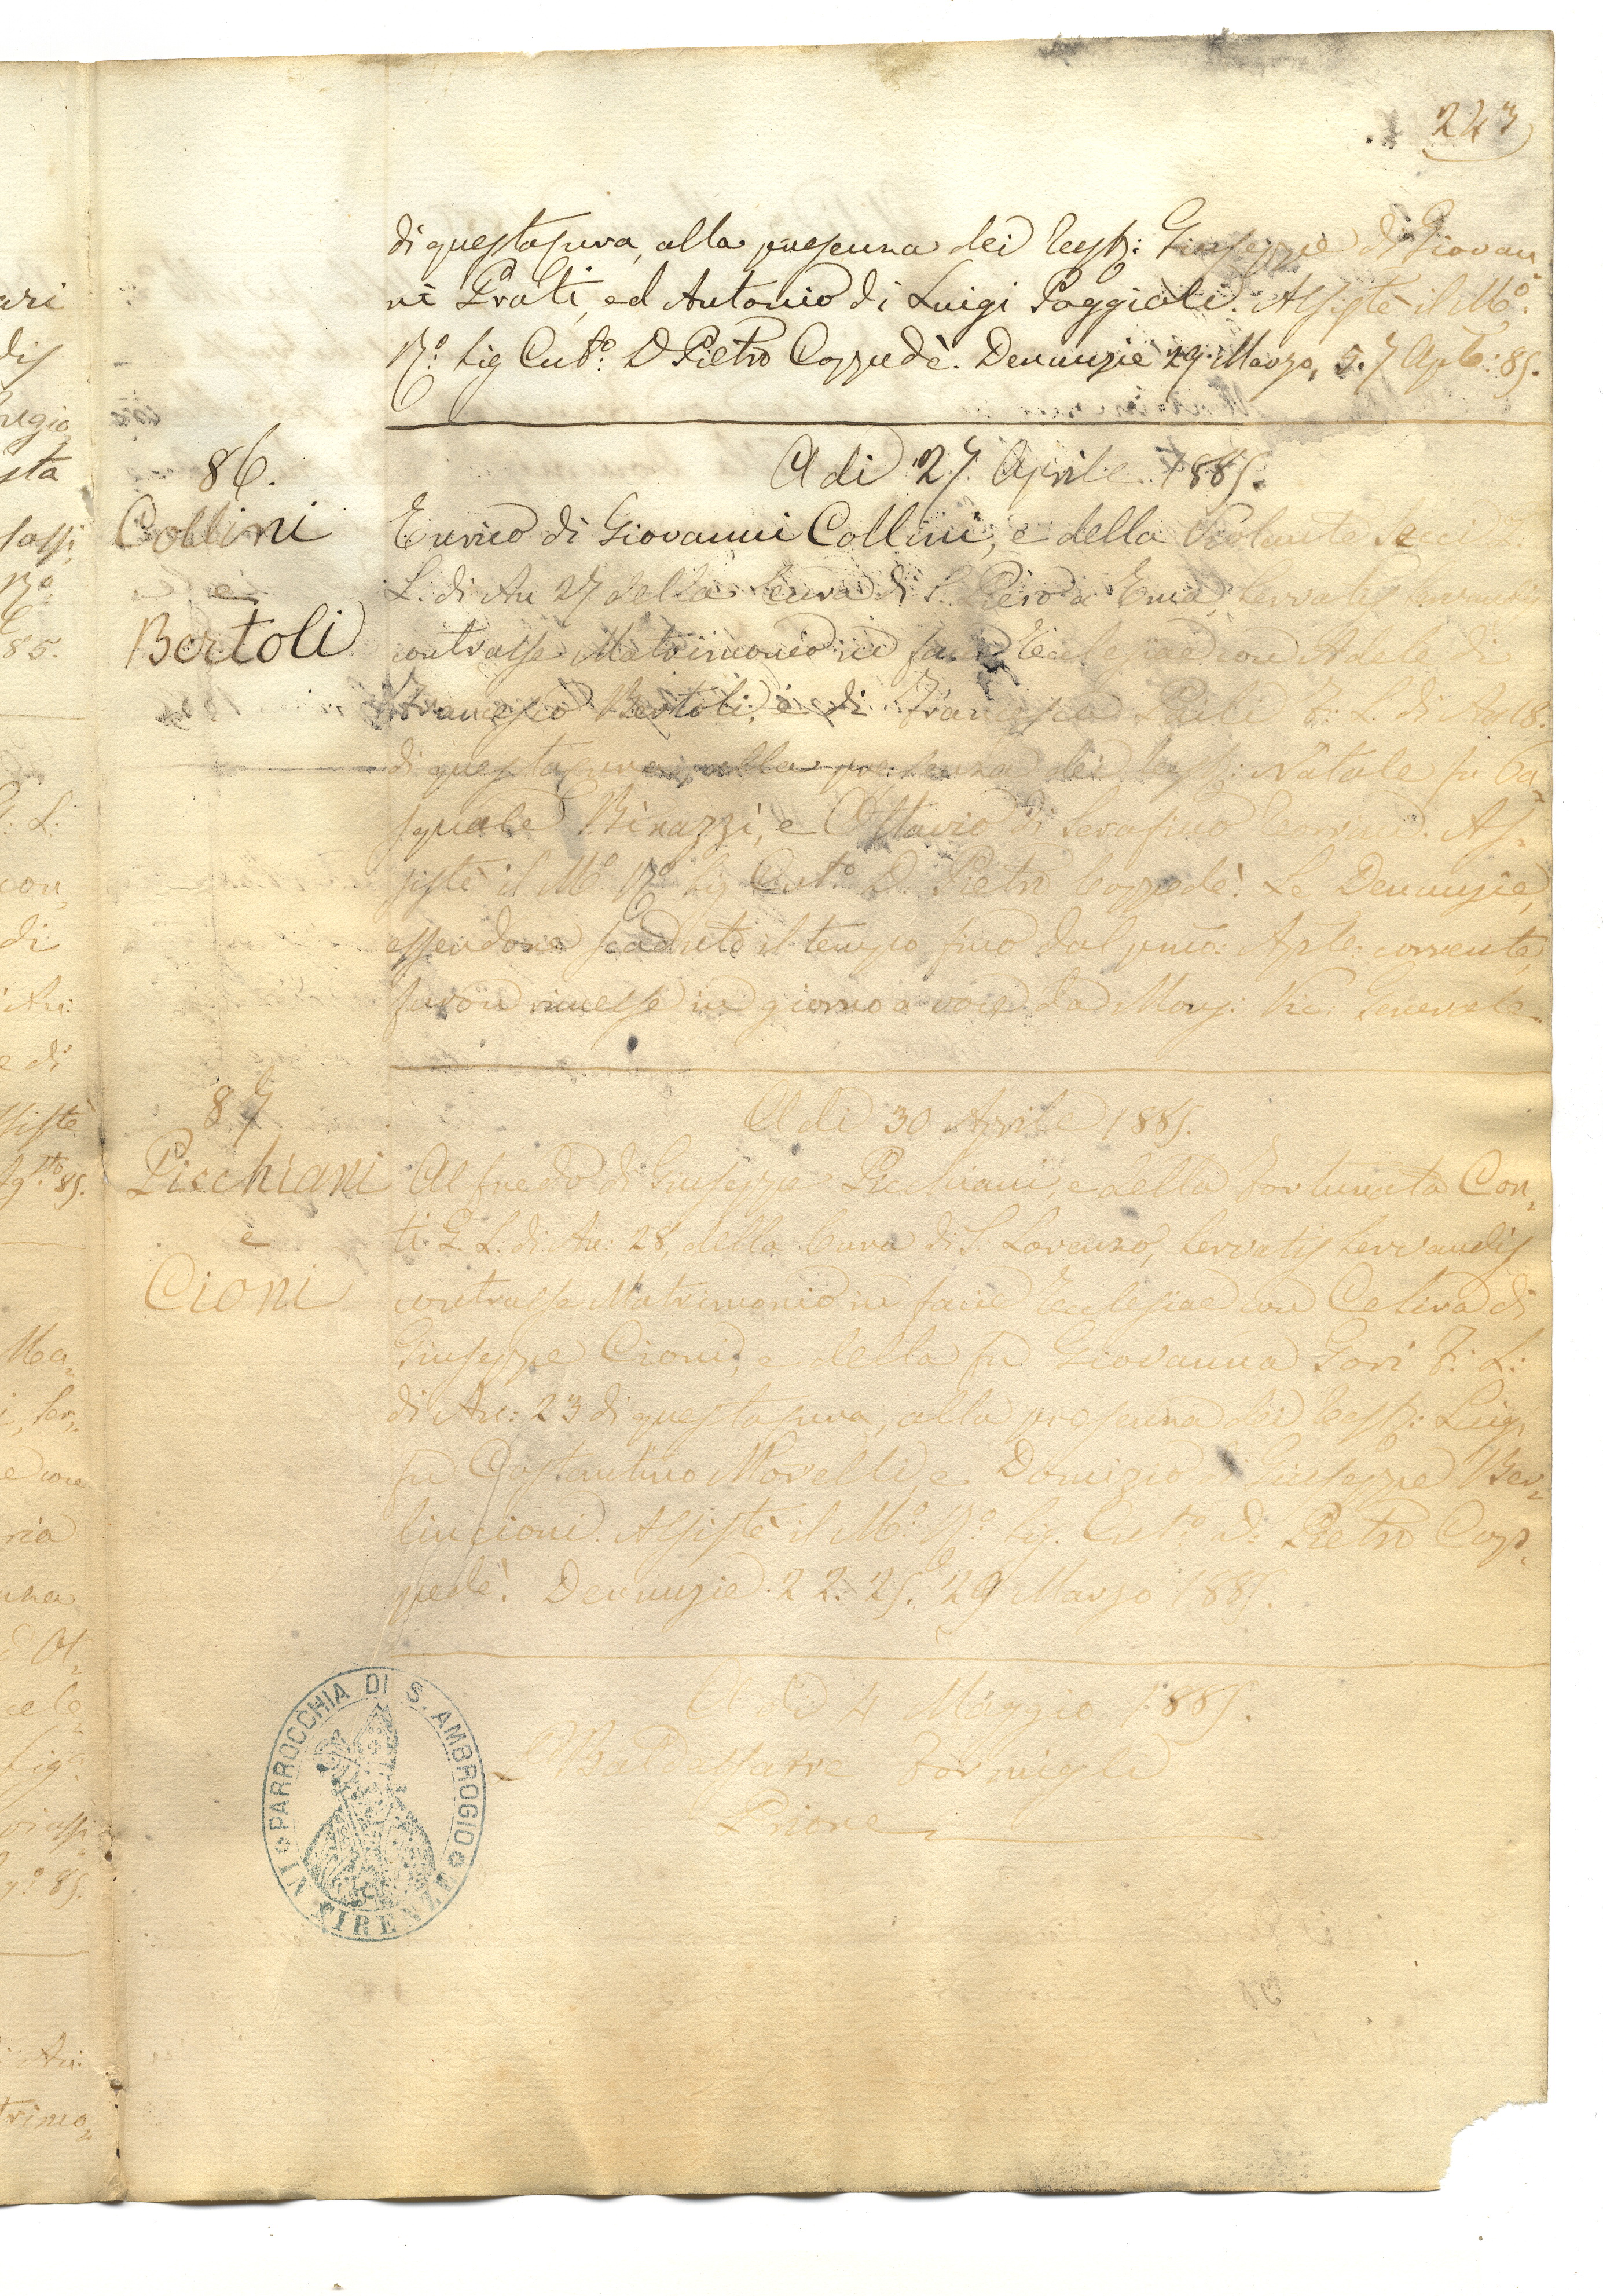 243
di questa cura, alla presenza dei Test: Giuseppe di Giovan
ni Prati, ed Antonio di Luigi Poggioli. Assistè il M.º
R.º Sig Cur.º D Pietro Coppedè. Denunzie 29. Marzo, 5. 7 Aple: 85.
86.
Collini
e
Bertoli
A di 27. Aprile 1885.
Enrico di Giovanni Collini, e della Violante
L. di An 27 della Cura di S. Piero a Ema, Servatis Servandis
contrasse Matrimonio in facie Ecclesiae con Adele di
Francesco Bertoli, e di Francesca F. L. di An 18.
di questa cura, alla presenza dei Test: Natale fu Pa=
squale Binazzi, e Ottavio di Serafino As=
sistè il M.º R.º Sig Cur.º D. Pietro Coppedè. Le Denunzie,
essendone scaduto il tempo fino dal primo: Aple: corrente,
furon rimesse in giorno a voce da Mons: Vic. Generale
87
Picchiani
e
Cioni
A di 30 Aprile 1885.
Alfredo di Giuseppe Picchiani, e della Fortunata Con=
ti G. L. di An: 28, della Cura di S. Lorenzo, Servatis Servandis
contrasse Matrimonio in facie Ecclesiae con di
Giuseppe Cioni, e della fu Giovanna Gori F: L:
di An: 23 di questa cura, alla presenza dei Test: Luigi
fu Costantino Morelli, e Domizio di Giuseppe Ber=
lincioni. Assistè il M.º R.º Sig. Cur.º D. Pietro Cop=
pedè. Denunzie. 22. 25. 29 Marzo 1885.
A di 4 Maggio 1885.
Baldassarre Formigli
Priore
PARROCCHIA DI S. AMBROGIO
IN FIRENZE